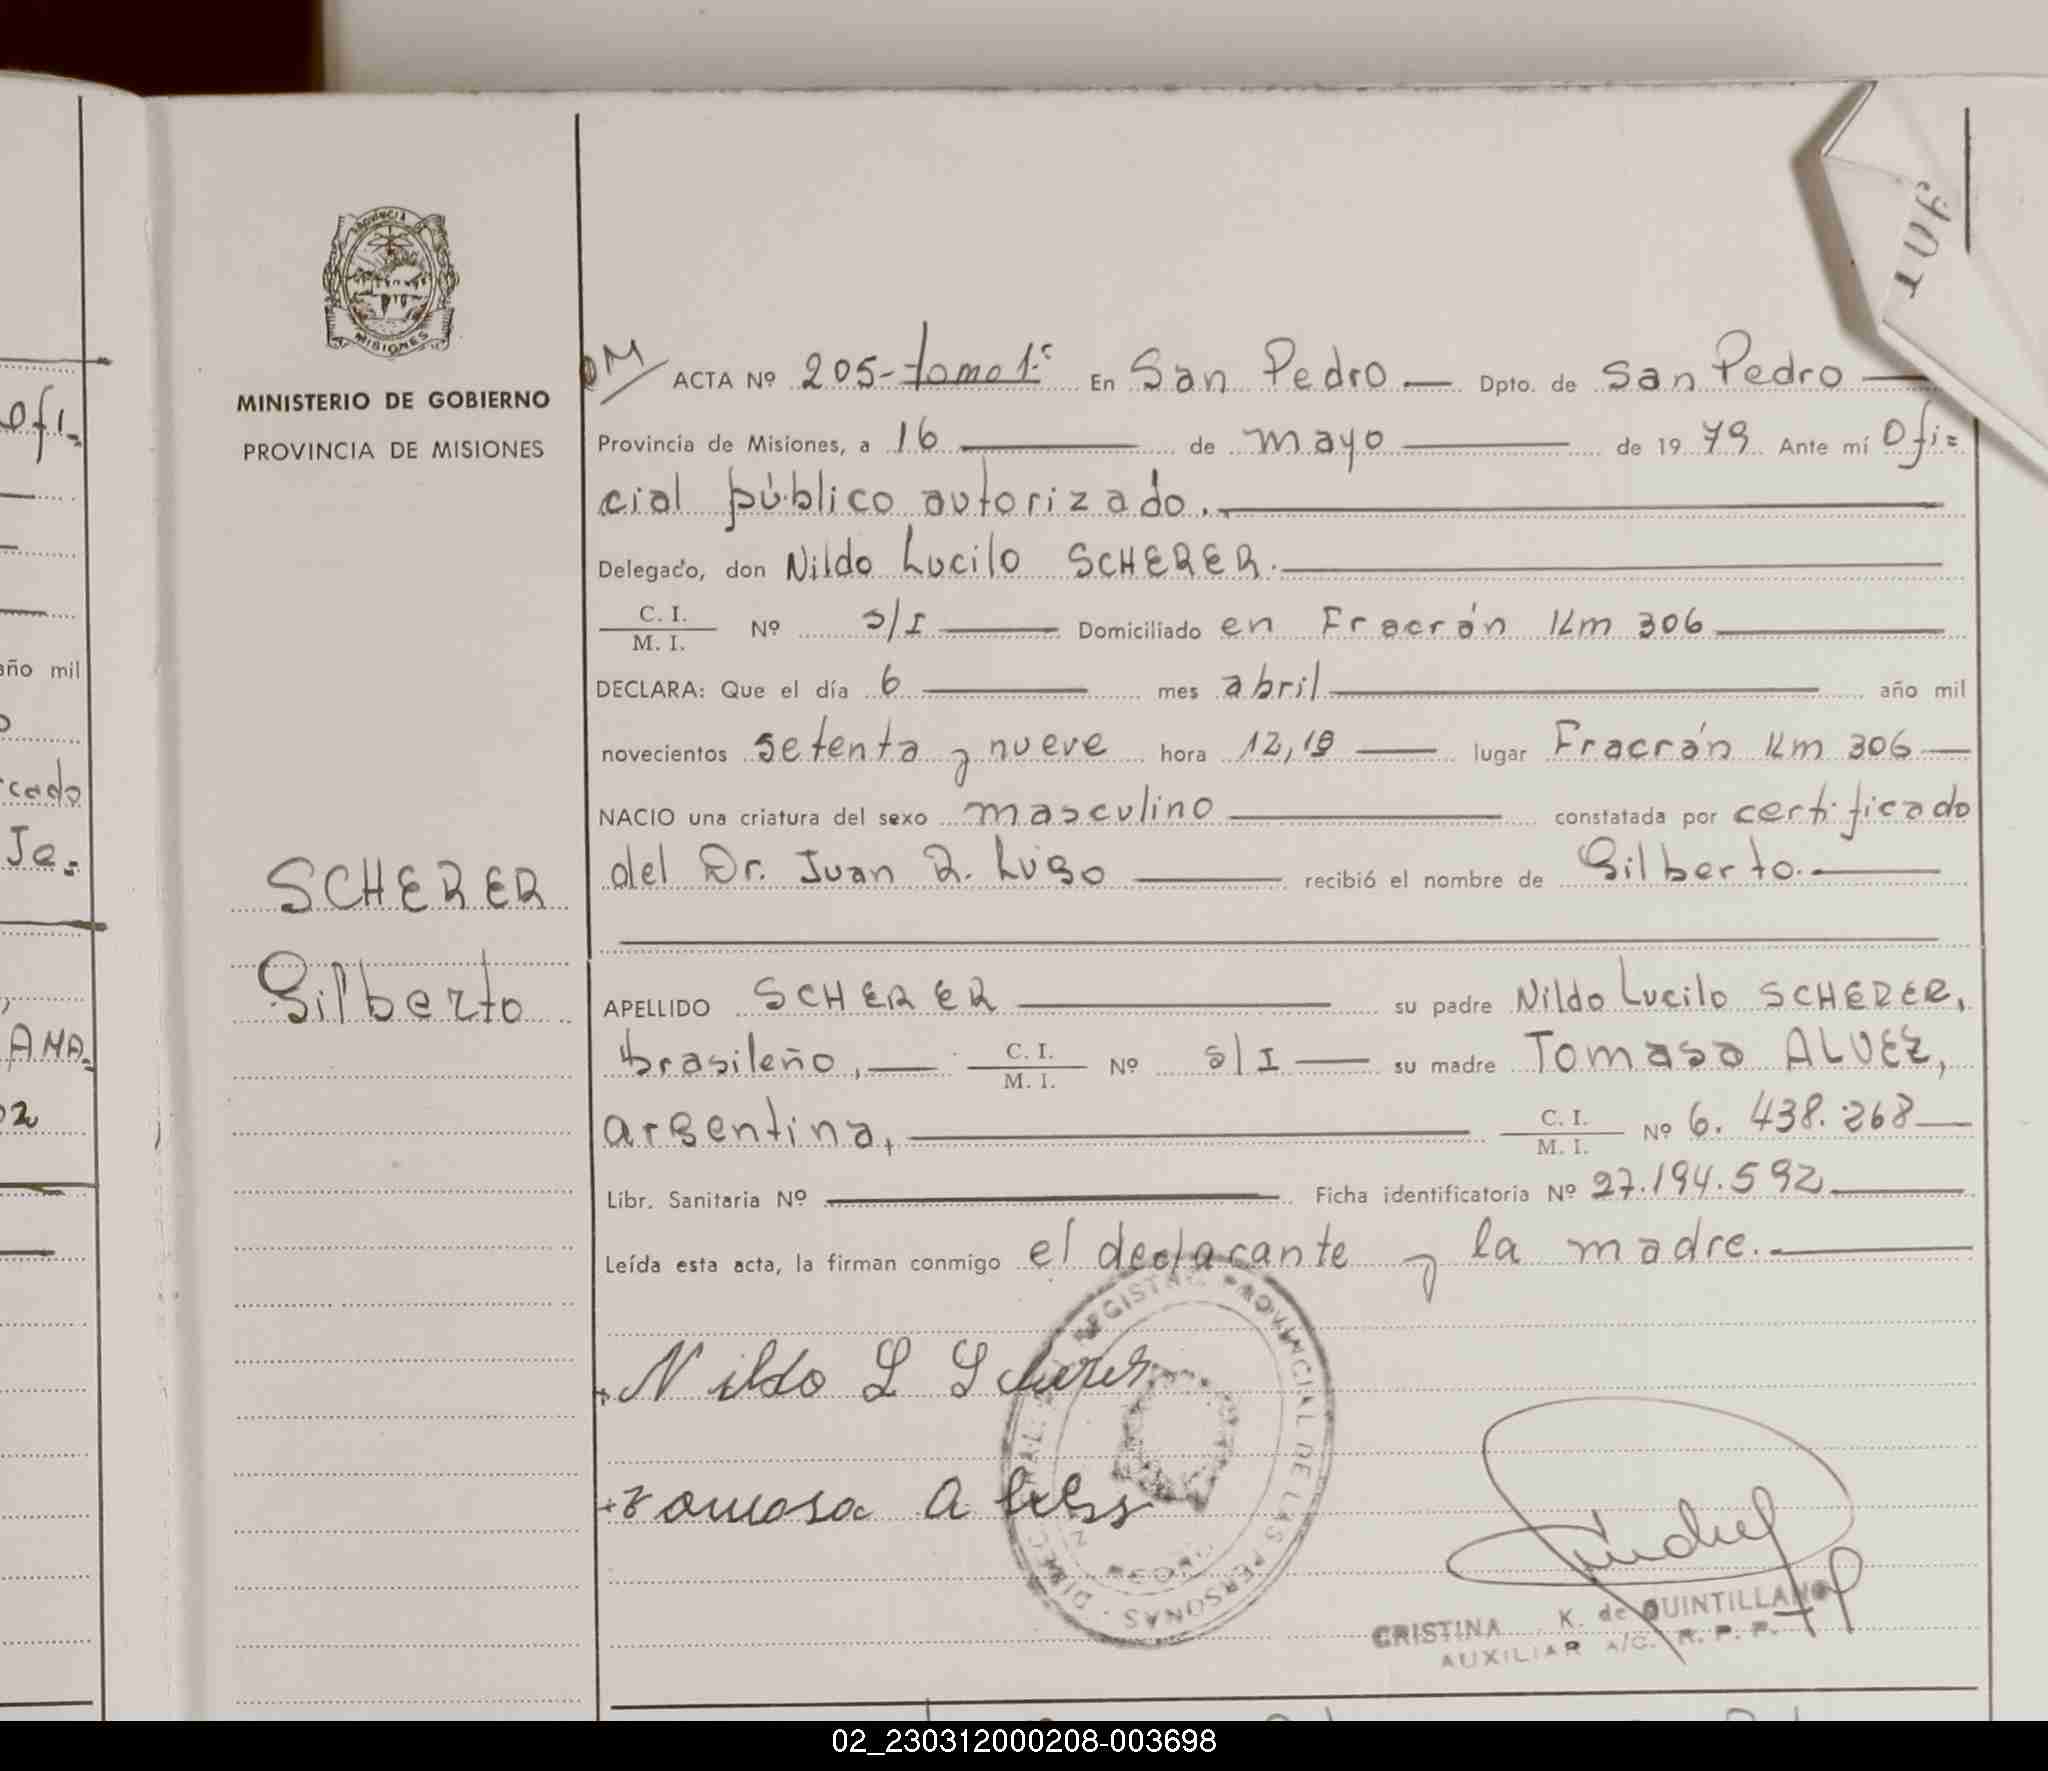 PROVINCIA DE
MISIONES
MINISTERIO DE GOBIERNO
PROVINCIA DE MISIONES
SCHERER
Gilberto
TUF
DM
ACTA Nº 205-tomo 1º En San Pedro Dpto. de San Pedro
Provincia de Misiones, a 16 de mayo de 1979 Ante mí Ofi=
cial público autorizado.
Delegado, don Nildo Lucilo SCHERER.
C. I.
M. I. Nº s/I Domiciliado en Fracrán Km 306
DECLARA: Que el día 6 mes abril año mil
novecientos setenta y nueve hora 12,10 lugar Fracrán Km 306
NACIO una criatura del sexo masculino constatada por certificado
del Dr. Juan R. Lugo recibió el nombre de Gilberto.
APELLIDO SCHERER su padre Nildo Lucilo SCHERER,
brasileño, C. I. M. I. Nº s/I su madre Tomasa ALVEZ,
argentina, C. I. M. I. Nº 6.438.268
Libr. Sanitaria Nº Ficha identificatoria Nº 27.194.592
Leída esta acta, la firman conmigo el declarante y la madre.
Nildo L Scherer
tomosa
REGISTRO PROVINCIAL DE LAS PERSONAS
CRISTINA K. de QUINTILLANO
AUXILIAR A/C. R. P. P.
ofi-
año mil
cado
Je.
AMA
02
02_230312000208-003698